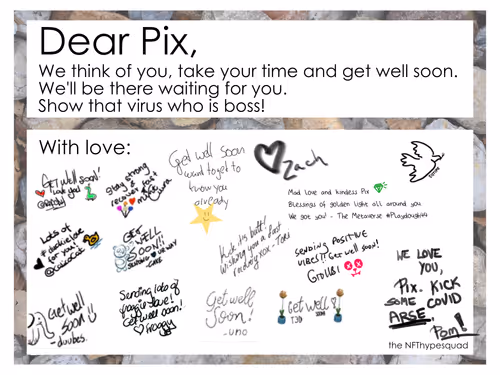 Dear Pix,
We think of you, take your time and get well soon.
We'll be there waiting for you.
Show that virus who is boss!
With love:
GET WELL SOON!
Stay strong
& recover fast
Get well soon
want to get to
know you
already
Zach
Mad love and kindess Pix
Blessings of golden light all around you
We got you! - The Metaverse
Lots of
for you!
GET
WELL
SOON!!
Kick its butt!
Wishing you a fast
SENDING POSITIVE
VIBES!! Get well soon!
WE LOVE
YOU,
PIX. KICK
SOME COVID
ARSE.
Pom!
Get well
soon!!
- duubes.
Sending lots of
Get well soon!
Froggy
Get well
Soon!
-uno
GET WELL
SOON
the NFThypesquad